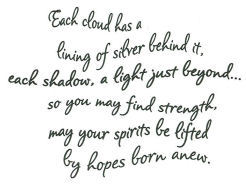 Each cloud has a
lining of silver behind it,
each shadow, a light just beyond...
so you may find strength,
may your spirits be lifted
by hopes born anew.